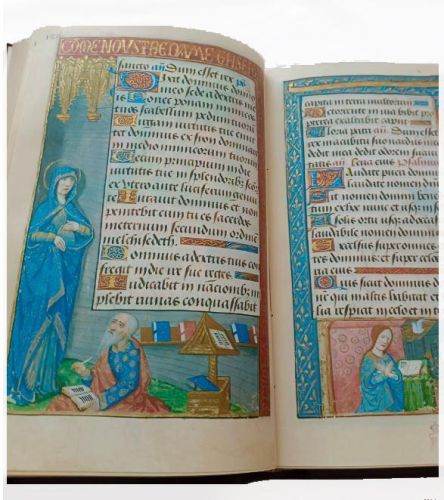 COME NOVS
sancto añ Dum esset rex ps
Dixit dominus domi
no meo sede a dextris me
is Donec ponam inimicos
tuos scabellum pedum tuoru
Virgam virtutis tue emit
tet dominus ex syon dominari
in medio inimicorum tuorum
Tecum principium in die
virtutis tue in splendorib;
ex utero ante luciferum genui
Juravit dominus et non
penitebit eum tu es sacerdos
ineternum secundum ordinē
melchisedech.
Dominus a dextris tuis con
fregit in die ire sue reges
Judicabit in nationib; im
plebit ruinas conquassabit
capita in terra multorum
De torrente in via bibit pro
pterea exaltabit caput
Gloria patri añ Dum esset
rex in accubitu suo nardus mea
odorem suavita
tis añ Leva eius Psalmus
Laudate pueri domi
laudate nomen do
Sit nomen domini bene
ex hoc nunc et usq;
solis ortu usq; ad occa
laudabile nomen domi
Excelsus super omnes
dominus et super celos
ria eius
sicut dominus deus
qui in altis habitat et
lia respicit in celo et in t